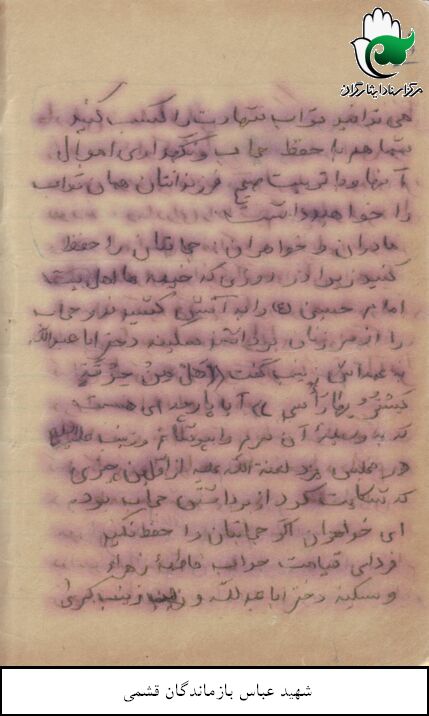 مرکز اسناد ایثارگران
می توانید ثواب شهادت را کسب کنید
شما هم با حفظ حجاب و نگهداری اموال
آنها و با تربیت صحیح فرزندانتان همان ثواب
را خواهید داشت
مادران و خواهران حجابتان را حفظ
کنید زیرا در روزی که خیمه ها اهل بیت
امام حسین (ع) را به آتش کشیدند و حجاب
را از سر زنان برداشتند سکینه دختر ابا عبدالله
به عمه اش زینب گفت ((هل من خرقة
رأسی)) آیا پارچه ای هست
که به وسیله آن سرم را بپوشانم و زینب
در مجلس یزد لعنة الله علیه از اولین چیزی
که شکایت کرد از برداشتن حجاب بود
ای خواهران اگر حجابتان را حفظ نکنید
فردای قیامت جواب فاطمه زهرا
و سکینه دختر ابا عبدلله و زینب کبری
شهید عباس بازماندگان قشمی